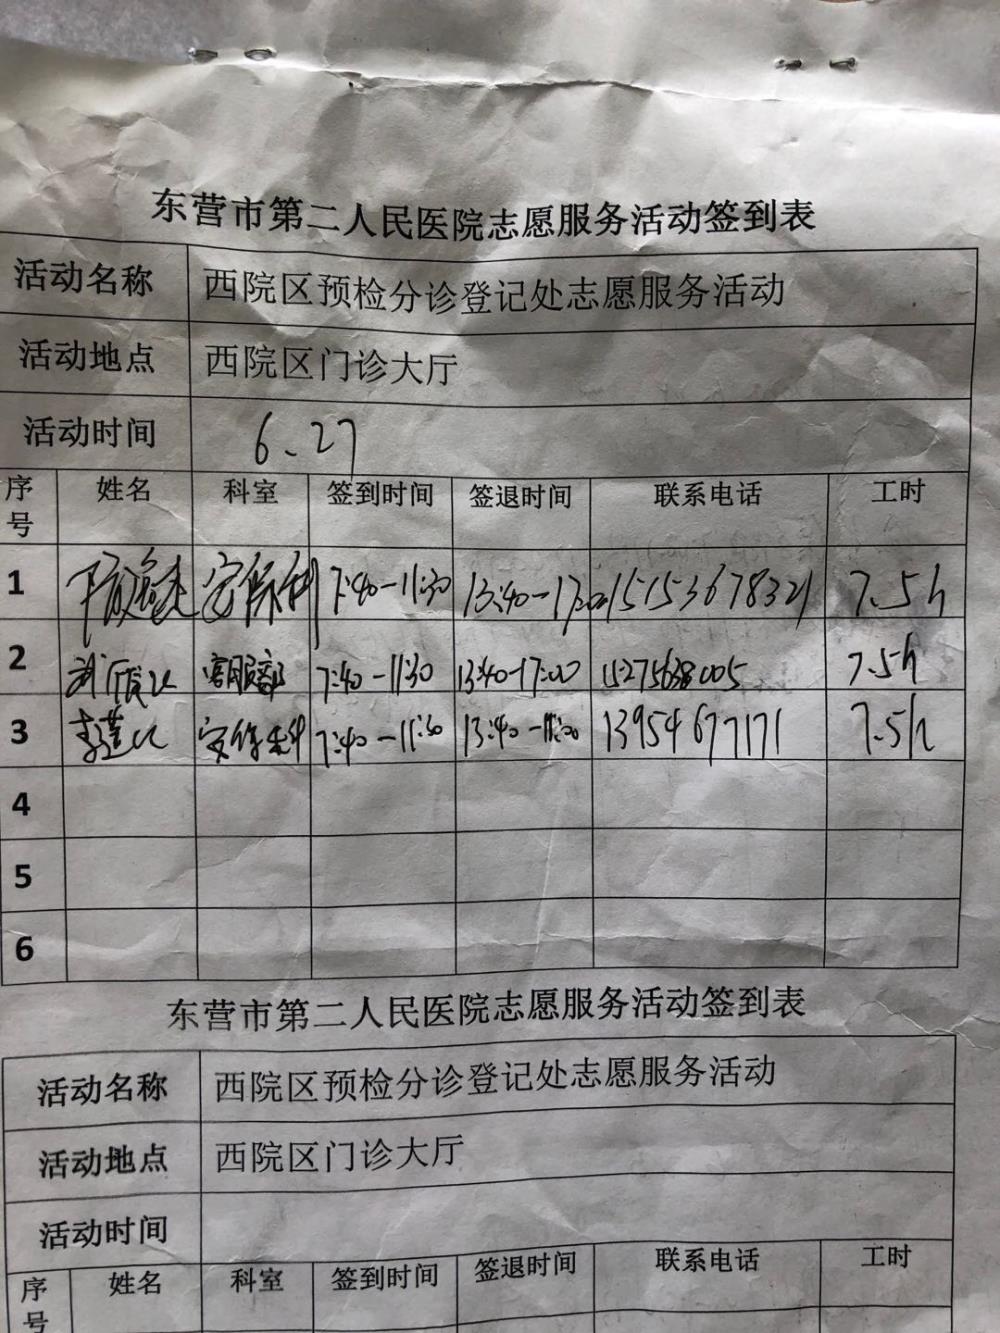 东营市第二人民医院志愿服务活动签到表
活动名称 西院区预检分诊登记处志愿服务活动
活动地点 西院区门诊大厅
活动时间 6.27
序号 姓名 科室 签到时间 签退时间 联系电话 工时
1 安保科 7:40-11:30 13:40-17:00 15153678321 7.5h
2 客服部 7:40-11:30 13:40-17:00 15275638005 7.5h
3 7:40-11:30 13954677171 7.5h
4
5
6
东营市第二人民医院志愿服务活动签到表
活动名称 西院区预检分诊登记处志愿服务活动
活动地点 西院区门诊大厅
活动时间
序号 姓名 科室 签到时间 签退时间 联系电话 工时